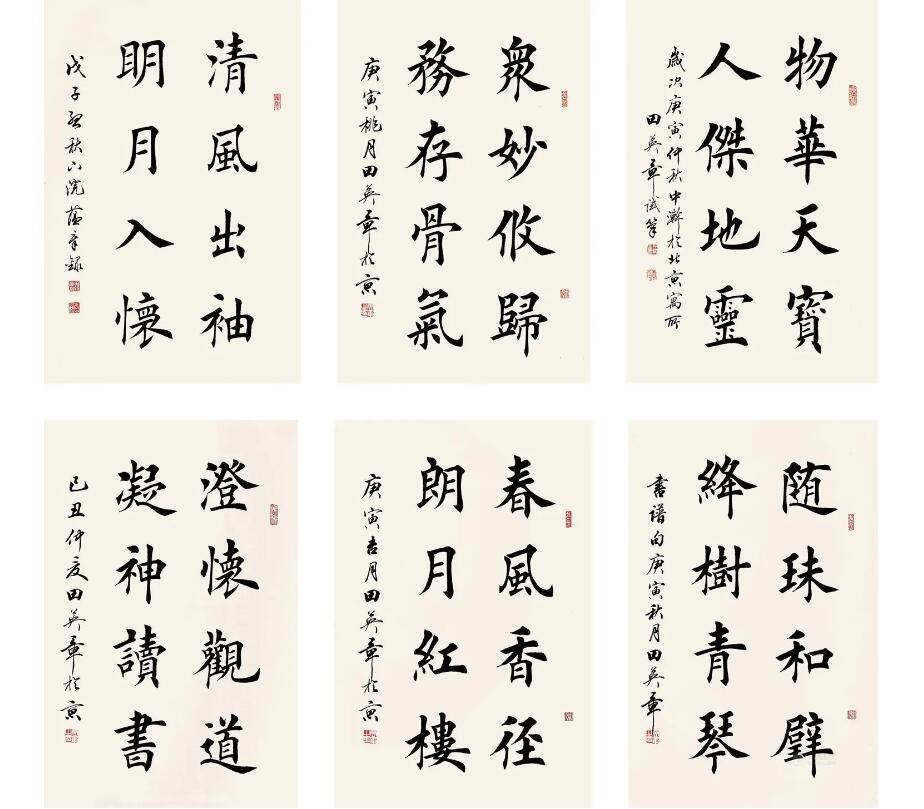 清風出袖
眀月入懷
戊子秋浣錄
衆妙攸歸
務存骨氣
庚寅桃月田英章於京
物華天寶
人傑地靈
歲次庚寅仲秋中澣於北京寓所
田英章試筆
澄懷觀道
凝神讀書
己丑仲夏田英章於京
春風香徑
朗月紅樓
庚寅吉月田英章於京
随珠和璧
絳樹青琴
書譜句庚寅秋月田英章